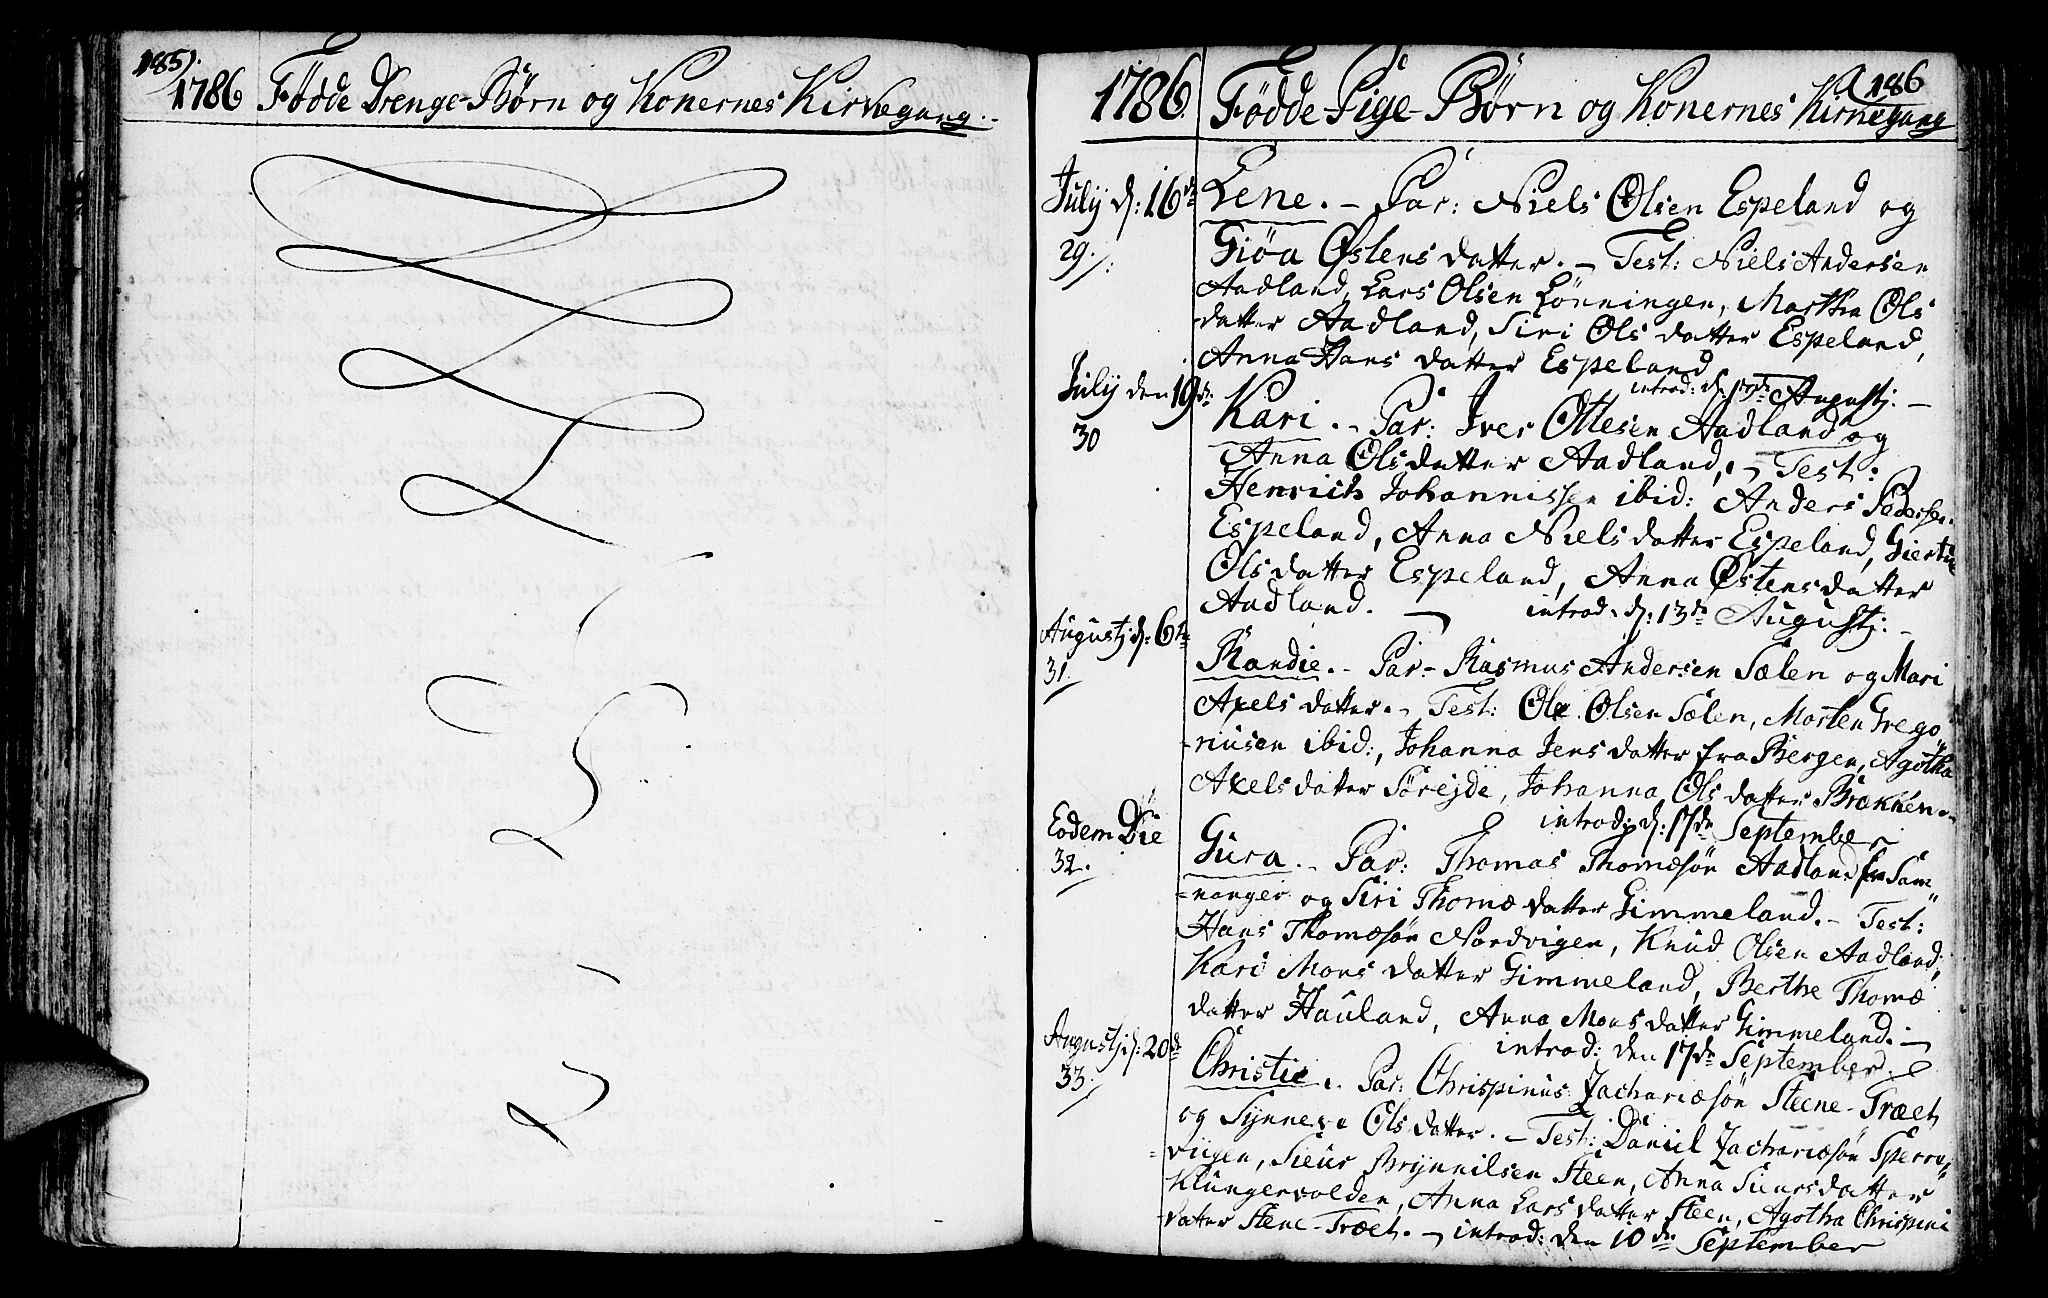 185).
1786 Fødde Drenge-Børn og Konernes Kirkegang.-
186
1786. Fødde Pige-Børn og Konernes Kirkegang
July d: 16de Lene. - Par: Niels Olsen Espeland og
29. Giøa Østens datter. - Test: Niels Andersen
Aadland, Lars Olsen Lønningen, Martha Ols
datter Aadland, Siri Ols datter Espeland,
Anna Hans datter Espeland
introd: d: 13de Augustj. -
July den 19de: Kari. - Par: Iver Ottesen Aadland og
30 Anna Olsdatter Aadland, - Test:
Henrich Johannissen ibid: Anders Pedersen
Espeland, Anna Nielsdatter Espeland, Giertru
Olsdatter Espeland, Anna Østensdatter
Aadland. - introd: d: 13de Augustj: -
Augustj d: 6te Randie. - Par- Rasmus Andersen Sælen og Mari
31. Axels datter. - Test: Ole Olsen Sælen, Morten Grego"
-riusen ibid:, Johanna Jens datter fra Bergen, Agotha
Axels datter Sørejde, Johanna Ols datter Brækken-
introd: d: 17de September
Eodem Die Gura. - Par: Thomas Thomæsøn Aadland fra Sam"
32. -nanger og Siri Thomædatter Gimmeland. - Test:
Hans Thomæsøn Nordvigen, Knud Olsen Aadland,
Kari Mons datter Gimmeland, Berthe Thomæ
datter Hauland, Anna Mons datter Gimmeland. -
introd: den 17de September.
Augustj d: 20de Christie. Par: Chrispinus Zachariæsøn Steene-Træet
33. og Synneve Ols datter. - Test: Daniel Zachariæsøn Sperre"
=viigen, Siur Brynnilsen Steen, Anna Siursdatter
Klungervolden, Anna Lars datter Steen, Agotha Chrispini
datter Stene-Træet. - introd: den 10de September